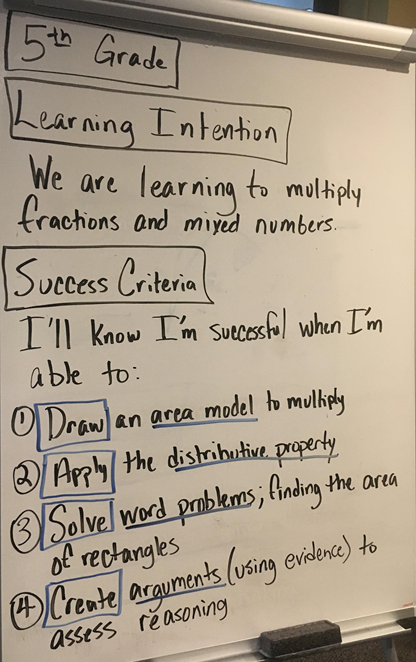 5th Grade
Learning Intention
We are learning to multiply
fractions and mixed numbers.
Success Criteria
I'll know I'm successful when I'm
able to:
① Draw an area model to multiply
② Apply the distributive property
③ Solve word problems; finding the area
of rectangles
④ Create arguments (using evidence) to
assess reasoning